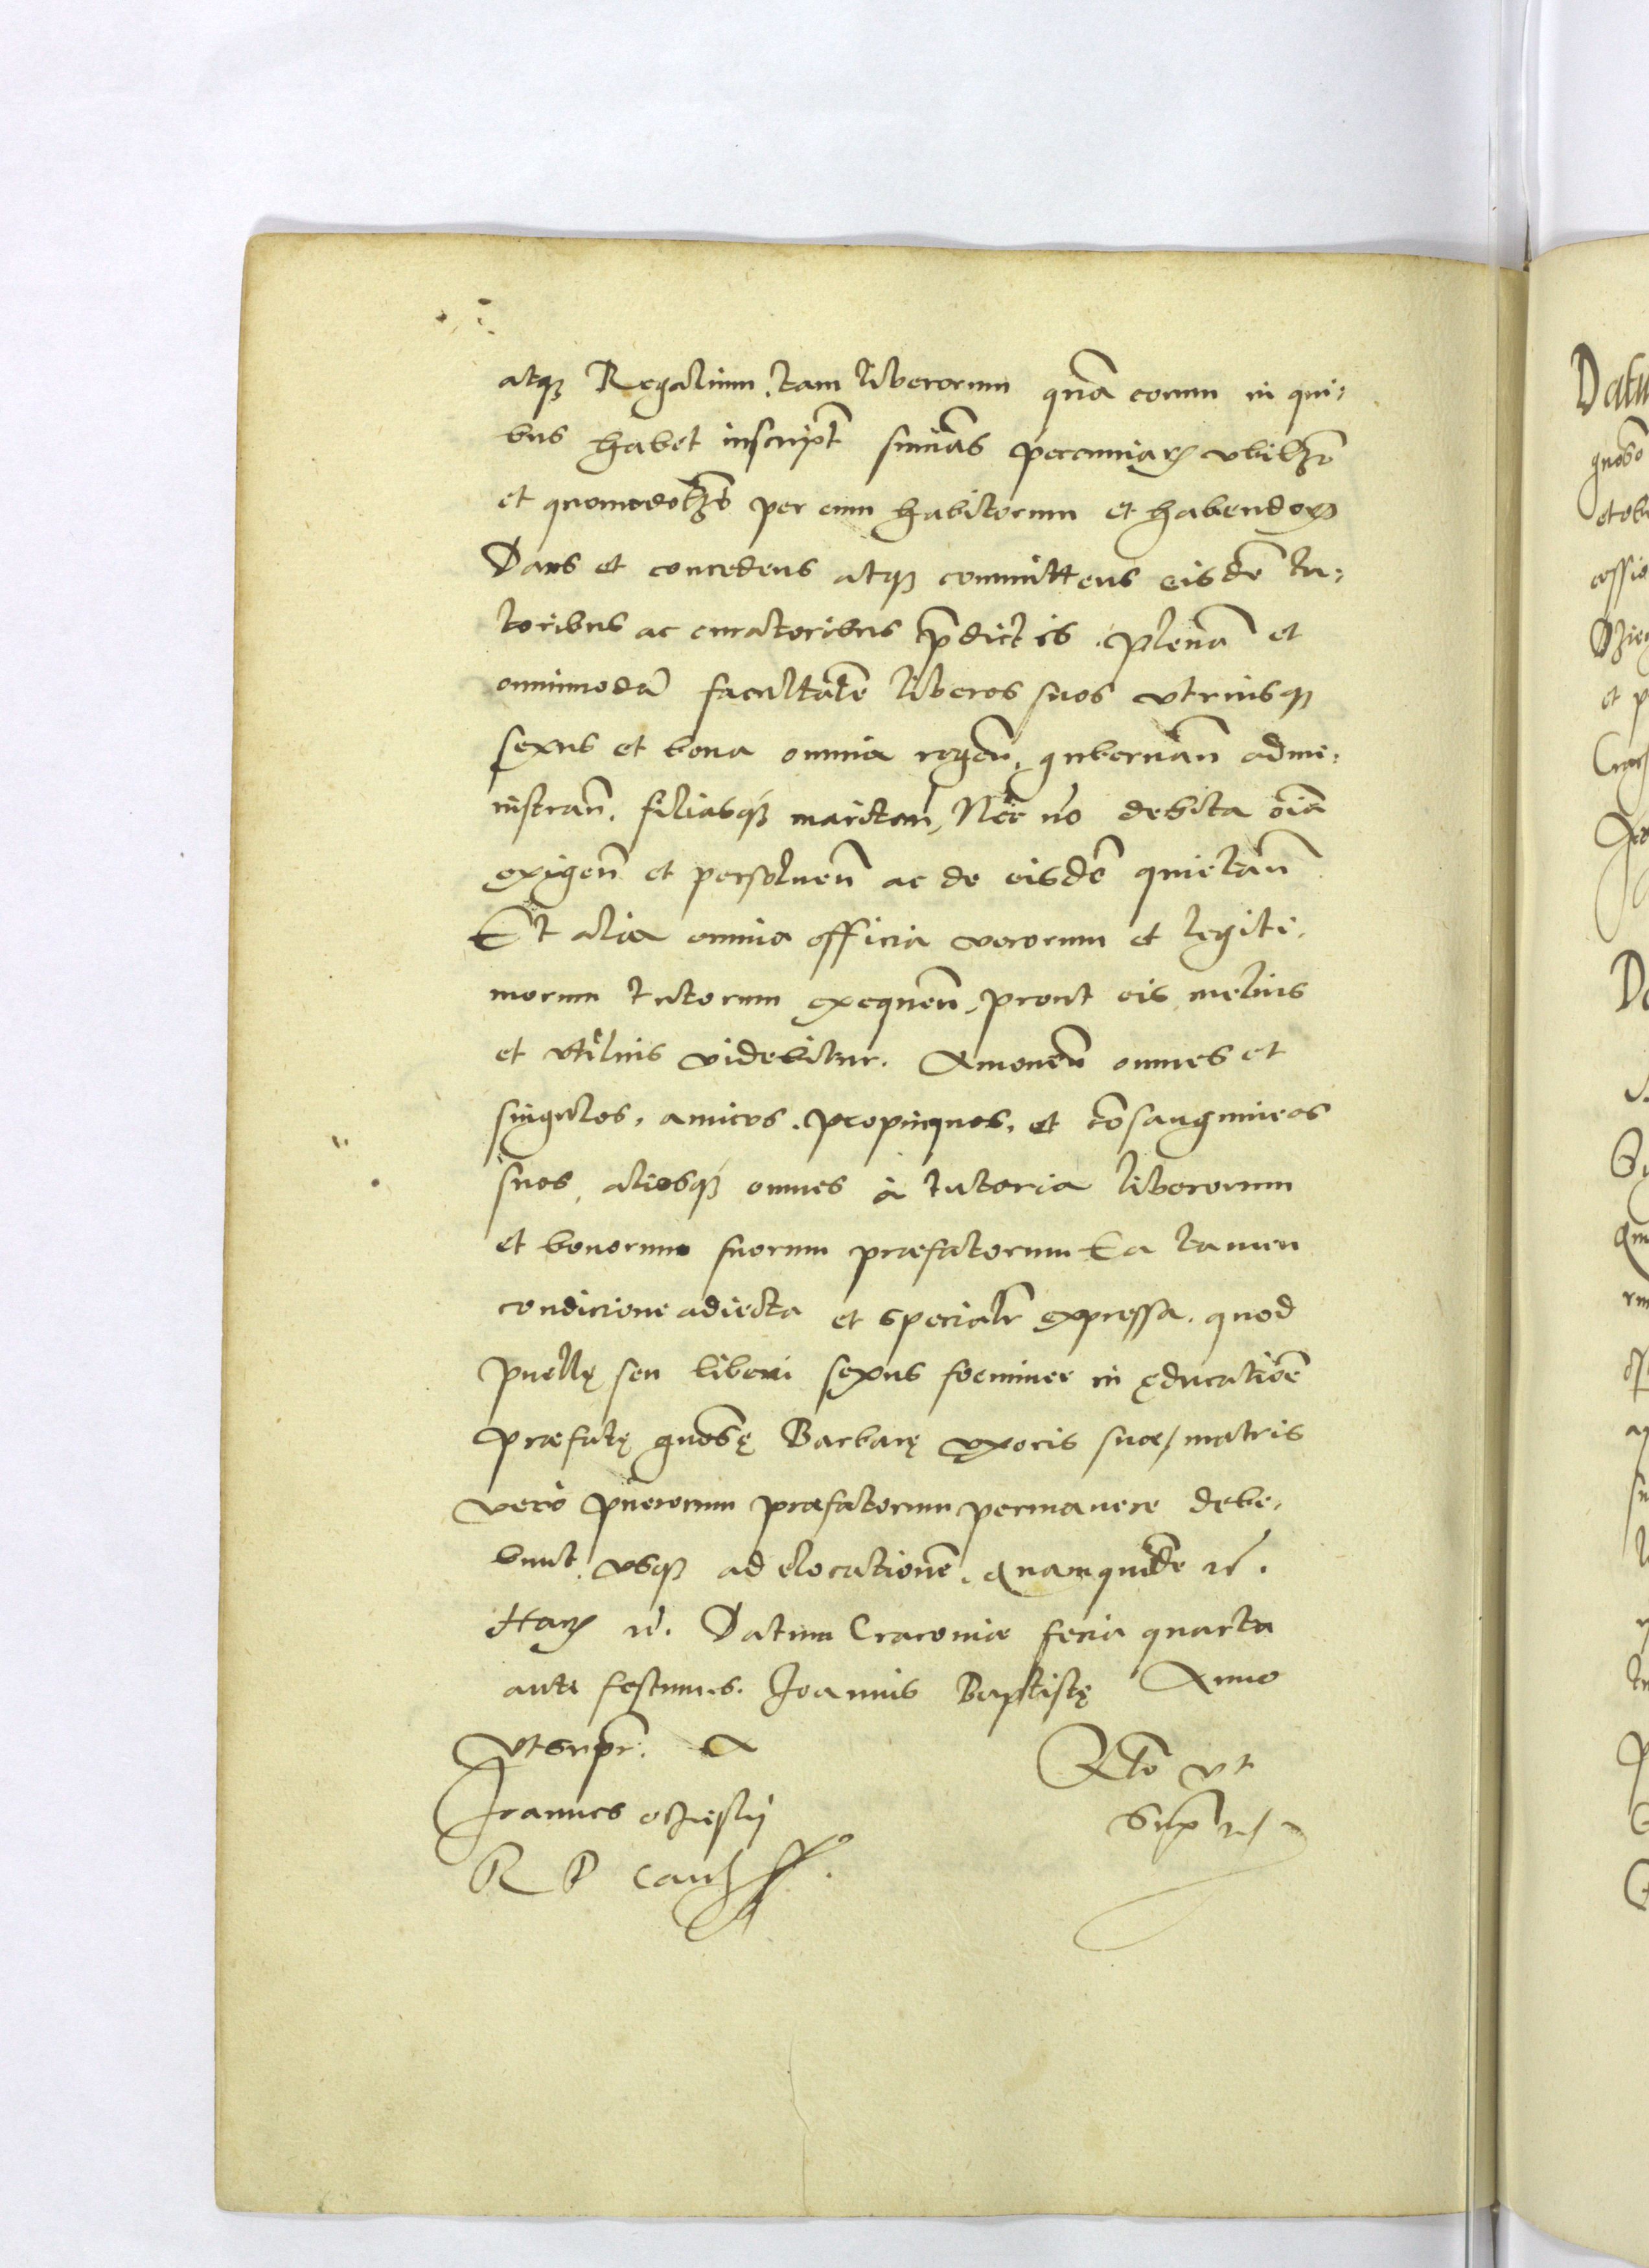 atq₃ Regalium, tam liberorum quã eorum in qui-
bus habet inscript sum̃as pecuniaꝝ vbilz̃
et quomodolz̃ per eum habitorum et habendoꝝ
Dans et concedens atq₃ committens eisdẽ tu-
toribus ac curatoribus p̃dictis. plenã et
omnimodã facultatẽ liberos suos vtriusq₃
sexus et bona omnia regeñ, gubernañ admi-
nistrañ. filiasq₃ maritañ, Nec nõ debita oĩa
exigeñ et persolueñ ac de eisdẽ quietañ
Et alia omnia officia verorum et legiti-
morum tutorum exequeñ, prout eis melius
et vtilius videbitur. Amoueñ omnes et
singulos, amicos, propinquos, et cõsanguineos
suos, aliosq₃ omnes à tutoria liberorum
et bonorum suorum præfatorum Ea tamen
condicione adiecta et specialr̃ expressa. quod
puellę seu liberi sexus foeminee in ęducatiõe
præfatę gñosę Barbarę vxoris suæ / matris
verò puerorum præfatorum permanere debe-
bunt, vsq₃ ad elocationẽ. Quamquidẽ rc̃.
Haꝝ rc̃. Datum Cracoviæ feria quarta
ante festum s. Joannis Baptistę Anno
vt supr̃.
Joannes ocziesky
R P Canc̃ ss.
R̃to vt
Sup̃ rc̃